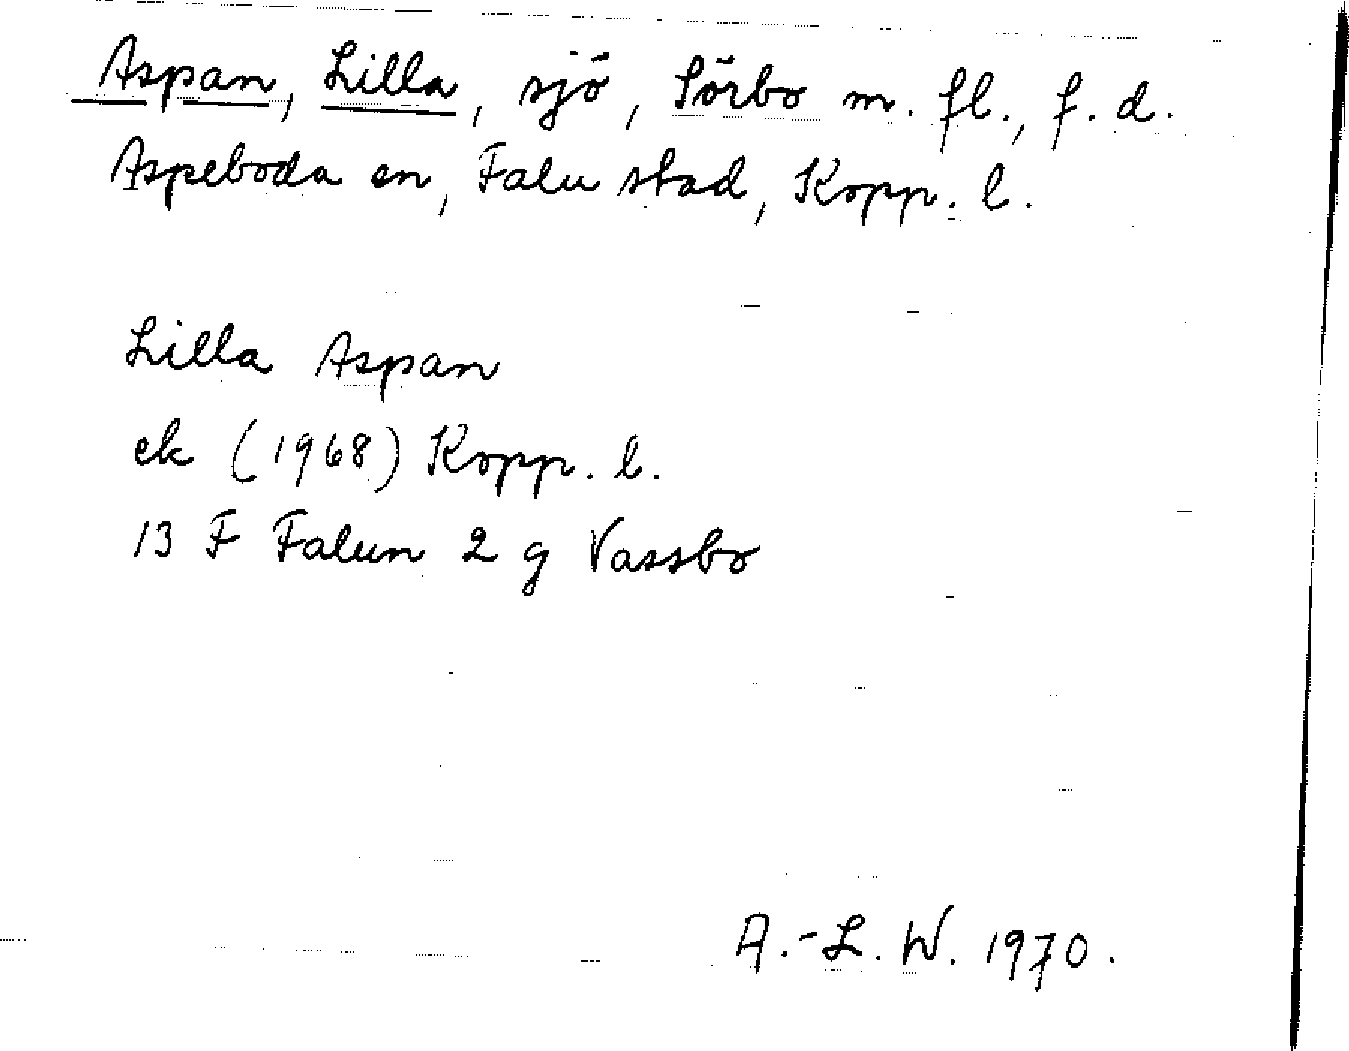 Aspan, Lilla, sjö, Sörbo m. fl., f. d.
Aspeboda sn, Falu stad, Kopp. l.
Lilla Aspan
ek (1968) Kopp. l.
13 F Falun 2 g Vassbo
A.-L. W. 1970.